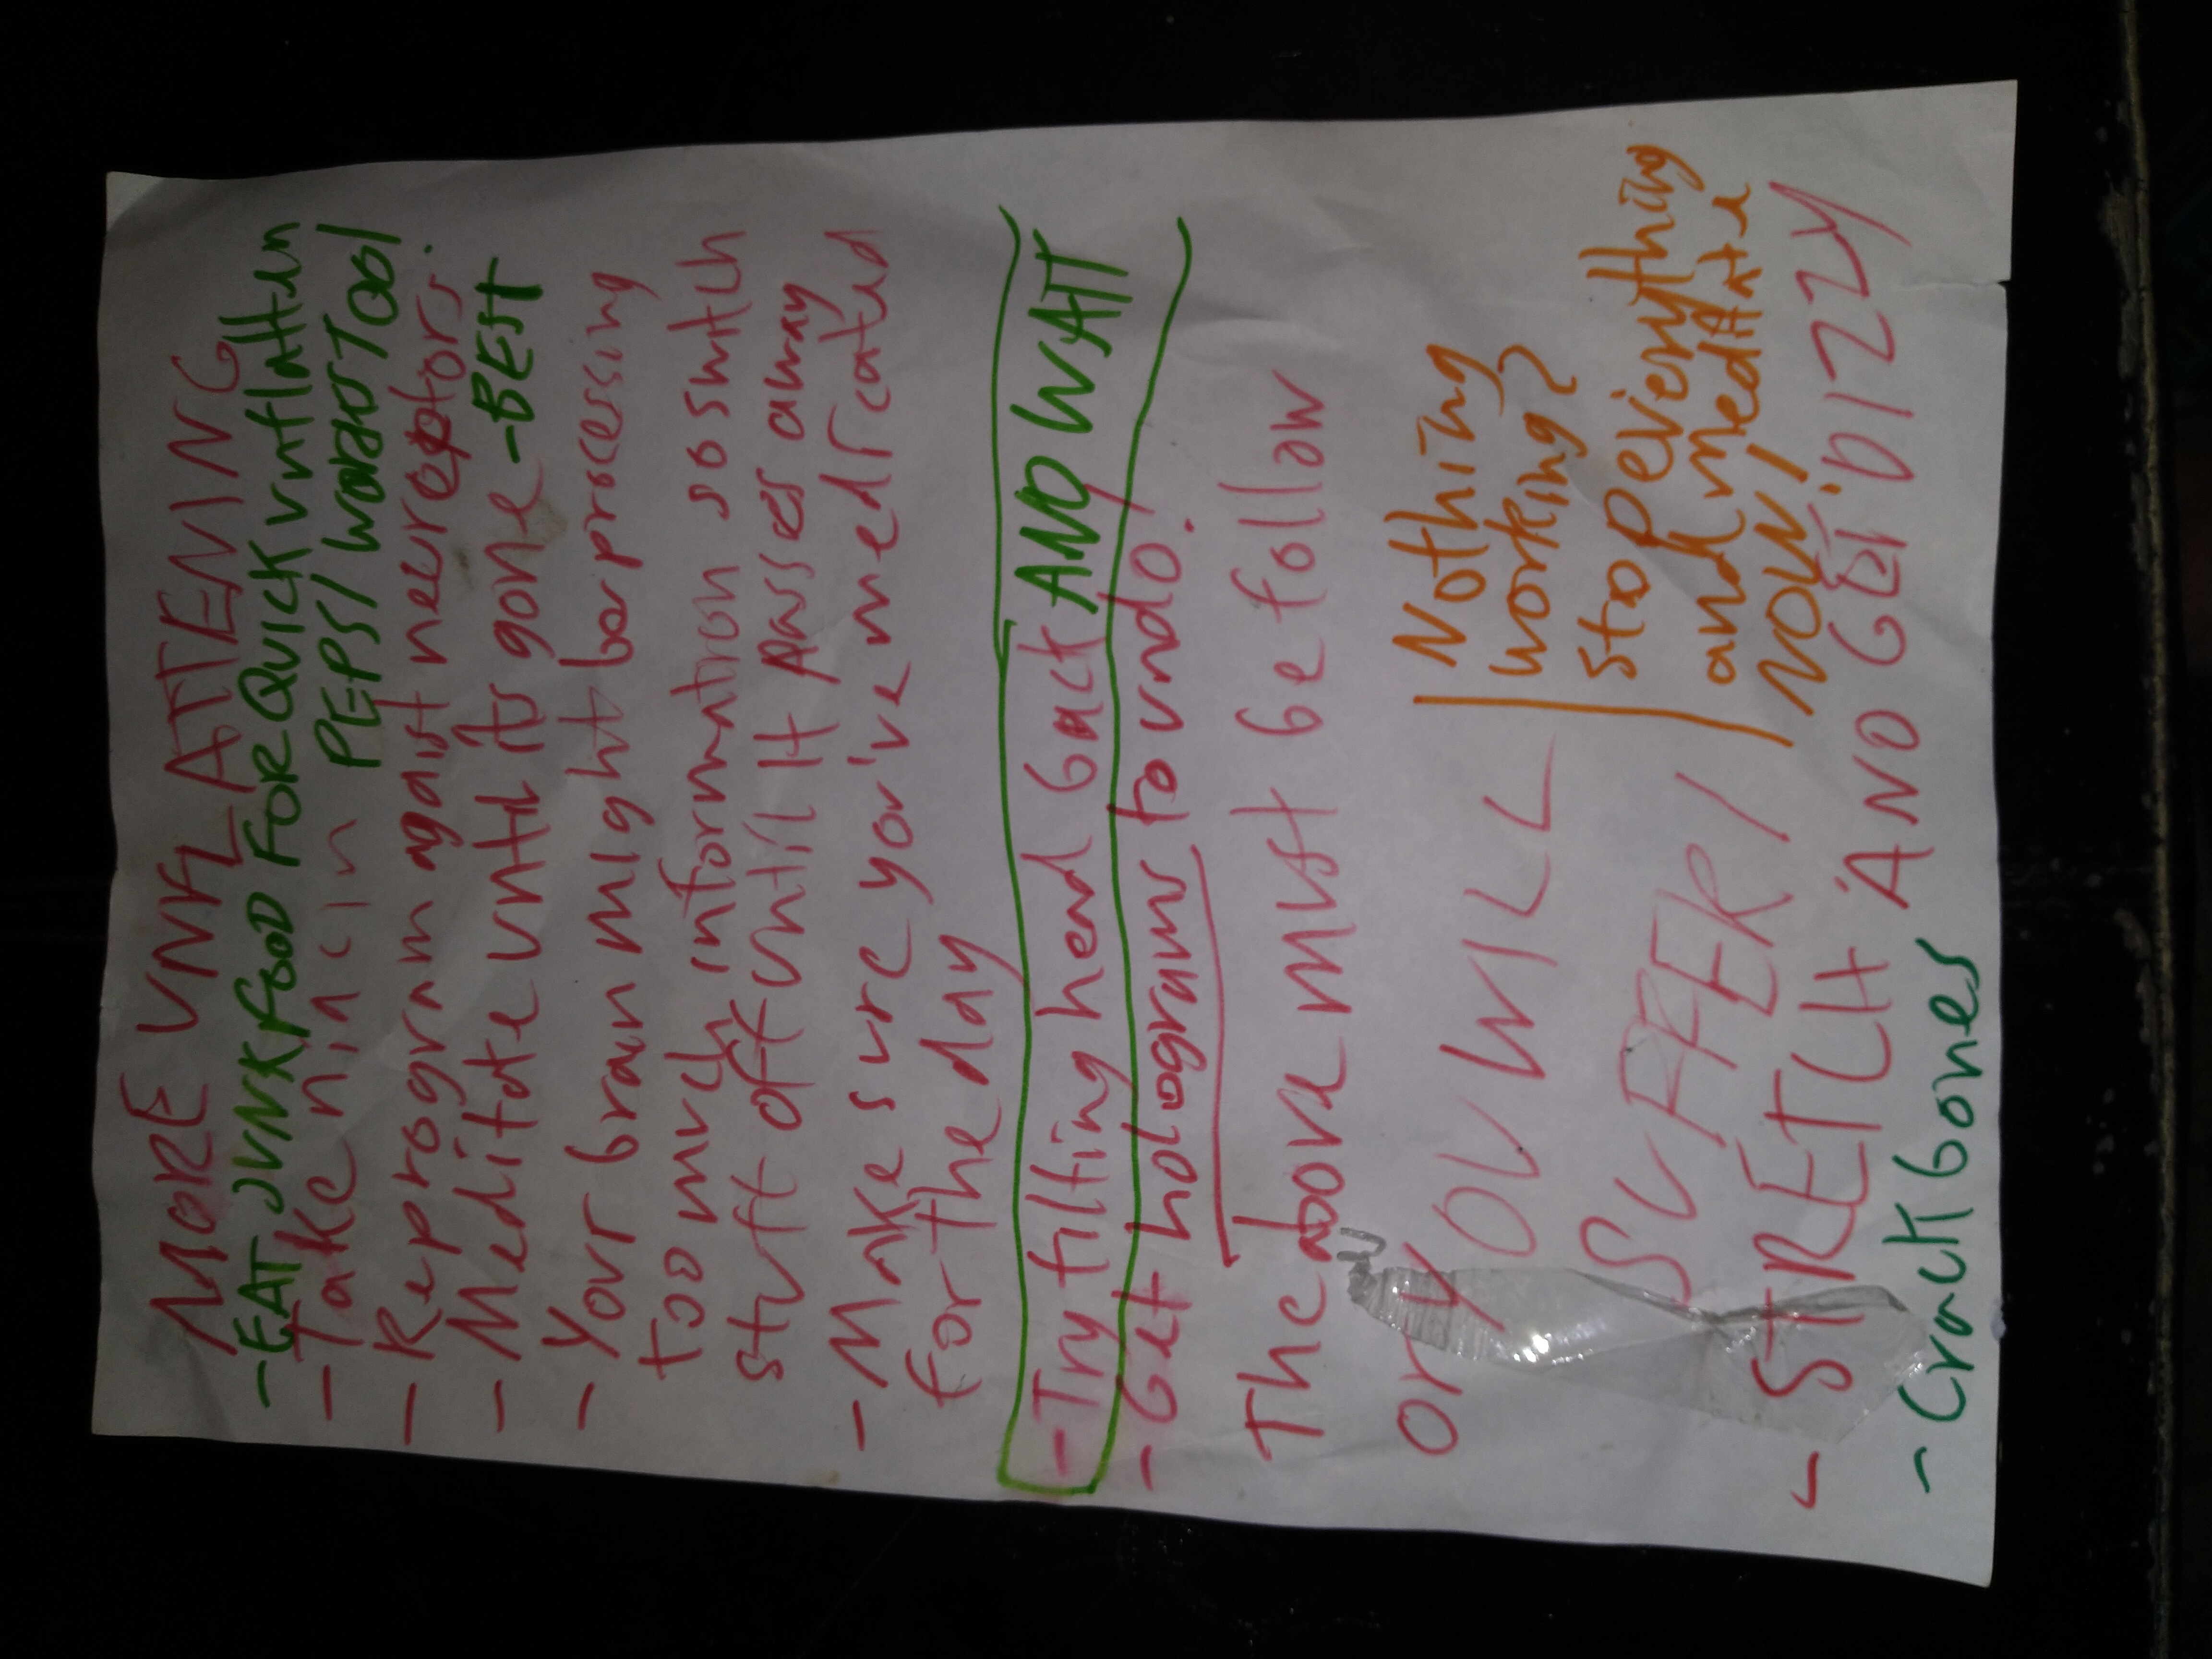 MORE UNFLATTENING
- EAT JUNK FOOD FOR QUICK Unflatten
- Take niacin PEPSI WORKS TOO!
- Reprogram agaist neureptors.
- Meditate until its gone - BEST
- Your brain might be processing
too much information so switch
stuff off until it passes away
- Make sure you've medicated
for the day
- Try tilting head back AND WAIT
- Get holograms to undo!
The above must be follow
or YOU WILL
SUFFER!
Nothing
working?
stop everything
and meditate
NOW!
- STRETCH AND GET DIZZY
- Crack bones